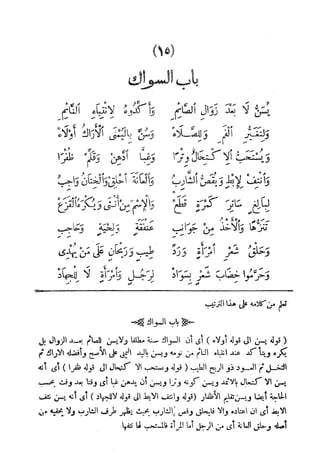 (١٥)
باب السواك
يُسَنُّ لَا بَعْدَ زَوَالِ الصَّائِمِ وَأَكَّدُوهُ لِانْتِبَاهِ النَّائِمِ
وَلِتَغَيُّرِ الْفَمِ وَلِلصَّلَاهْ وَسُنَّ بِالْيُمْنَى الْأَرَاكُ أَوْلَاهْ
وَيُسْتَحَبُّ الِاكْتِحَالُ وِتْرَا وَغِبًّا ادَّهِنْ وَقَلِّمْ ظُفْرَا
وَانْتِفْ لِإِبْطٍ وَيُقَصُّ الشَّارِبُ وَالْعَانَةَ احْلِقْ وَالْخِتَانُ وَاجِبُ
لِبَالِغٍ سَاتِرِ كَمْرَةٍ قَطَعْ وَالِاسْمِ مِنْ أُنْثَى وَيُكْرَهُ الْقَزَعْ
تَنَزُّهًا وَالْأَخْذُ مِنْ جَوَانِبِ عَنْفَقَةٍ وَلِحْيَةٍ وَحَاجِبِ
وَحَلْقُ شَعْرِ امْرَأَةٍ وَرَدُّ طِيبٍ وَرَيْحَانٍ عَلَى مَنْ يُهْدِي
وَحَرَّمُوا خِضَابَ شَعْرٍ بِسَوَادْ لِرَجُلٍ وَامْرَأَةٍ لَا لِلْجِهَادْ
تعلم من كلامه على هذا الترتيب
باب السواك
(قوله يسن الى قوله أولاه) أى أن السواك سنة مطلقا ولايسن للصائم بعد الزوال بل
يكره ويتأكد عند انتباه النائم من نومه ويسن باليد اليمنى على الأصح وأفضله الاراك ثم
النخل ثم العود ذو الريح الطيب (قوله ويستحب الاكتحال الى قوله ظفرا) أى أنه
يسن الاكتحال بالاثمد ويسن كونه وترا ويسن أن يدهن غبا أى وقتا بعد وقت بحسب
الحاجة أيضا ويسن تقليم الأظفار (قوله وانتف لابط الى قوله لا للجهاد) أى أنه يسن نتف
الابط أى ان اعتاده والا فليحلق وقص الشارب بحيث يظهر طرف الشارب ولا يحفيه من
أصله وحلق العانة أى من الرجل أما المرأة فالمستحب لها نتفها